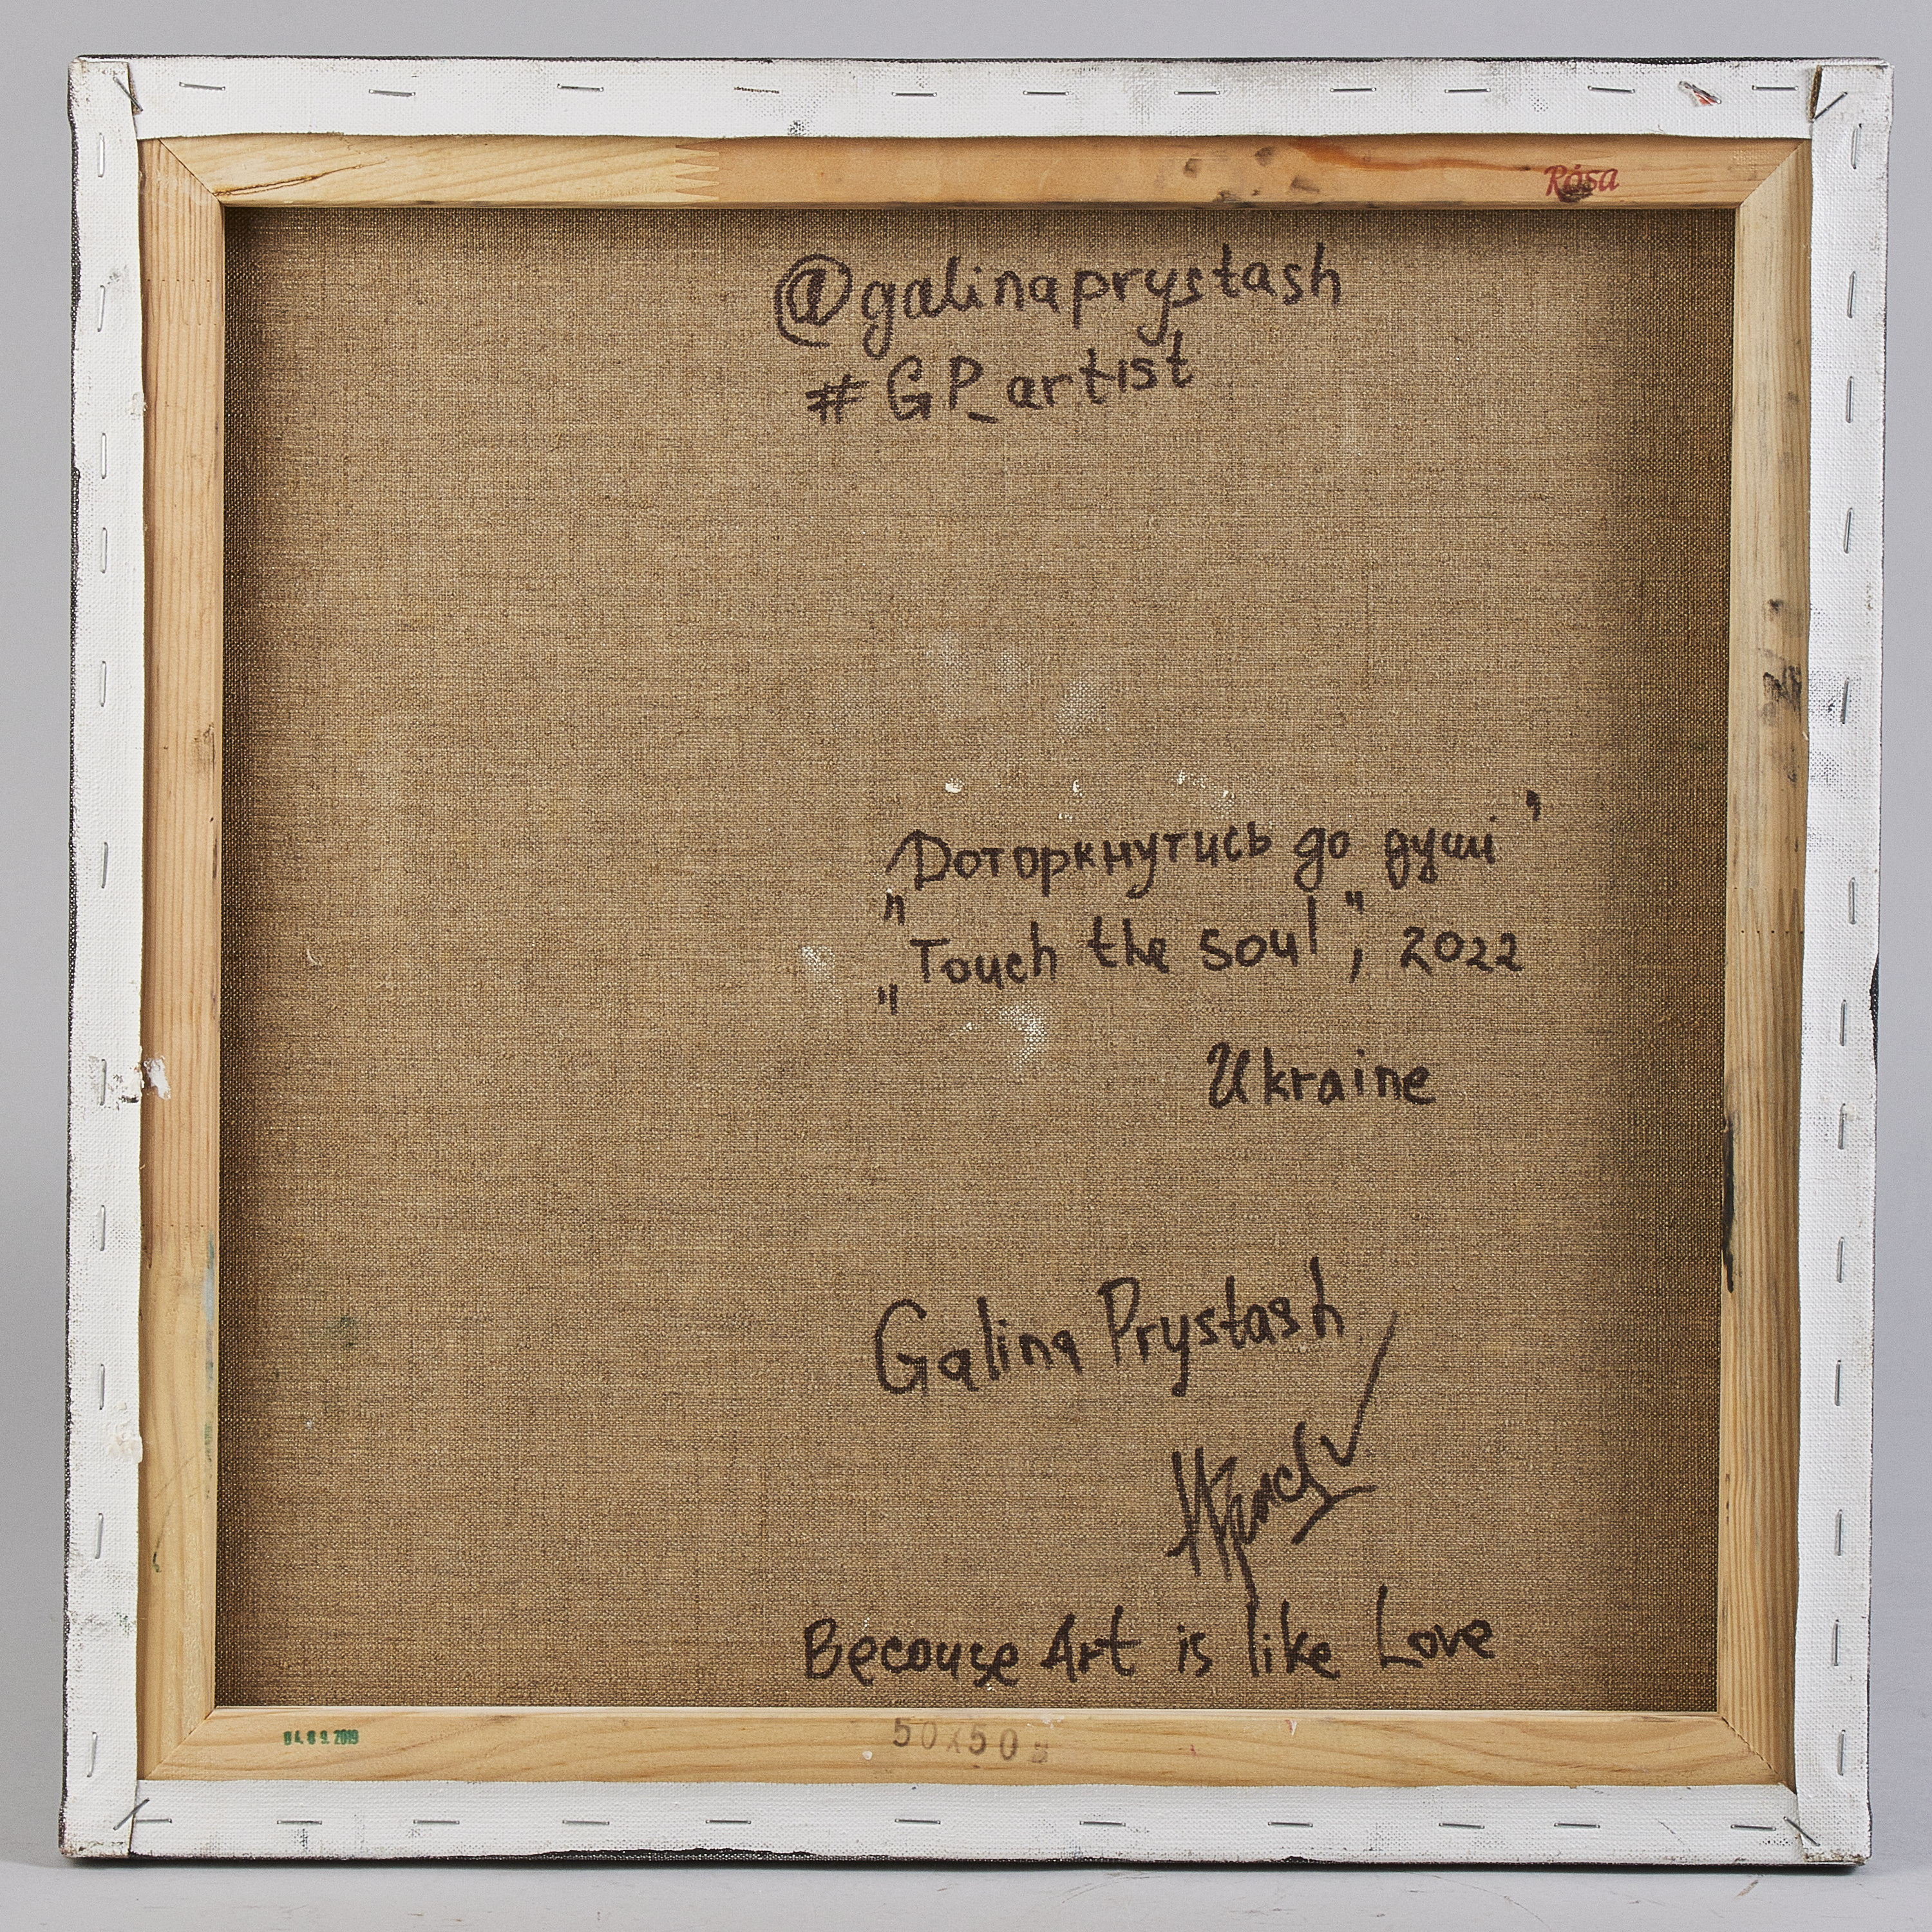 Rósa
@galinaprystash
#GP_artist
"Доторкнутись до душі"
"Touch the soul", 2022
Ukraine
Galina Prystash
Becouse Art is like Love
04.09.2019
50x50